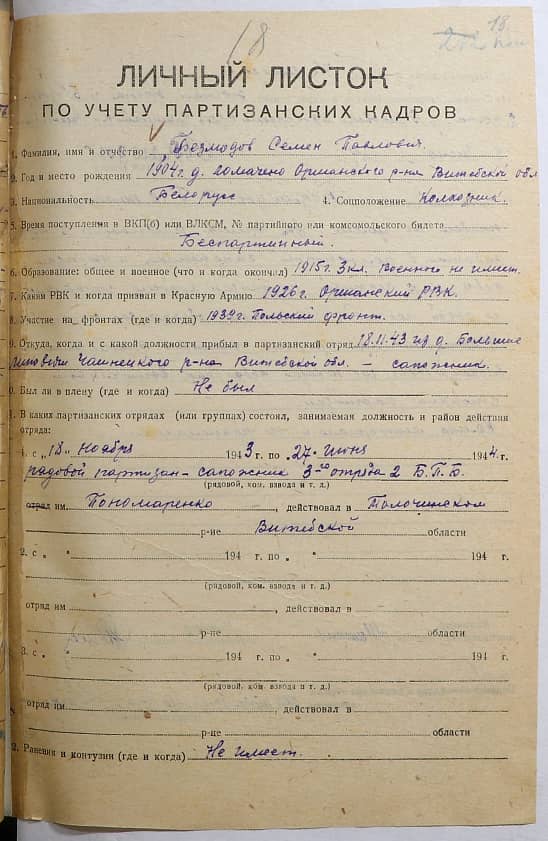 18
18.
ЛИЧНЫЙ ЛИСТОК
ПО УЧЕТУ ПАРТИЗАНСКИХ КАДРОВ
1. Фамилия, имя и отчество Безмодов Семен Павлович
2. Год и место рождения 1904 г. д. Оршанского р-на Витебской обл
3. Национальность Белорусс 4. Соцположение Колхозник.
5. Время поступления в ВКП(б) или ВЛКСМ, № партийного или комсомольского билета
Беспартийный.
6. Образование: общее и военное (что и когда окончил) 1915 г. 3 кл. Военного не имеет.
7. Каким РВК и когда призван в Красную Армию 1926 г. Оршанский РВК.
8. Участие на фронтах (где и когда) 1939 г. Польский фронт.
9. Откуда, когда и с какой должности прибыл в партизанский отряд 18.11.43 из д. Большие
р-на Витебской обл. – сапожник.
0. Был ли в плену (где и когда) Не был
1. В каких партизанских отрядах (или группах) состоял, занимаемая должность и район действия
отряда:
1. с „18„ ноября 1943 г. по „27„ июня 1944 г.
рядовой партизан – сапожник 3-го отряда 2 Б.П.Б.
(рядовой, ком. взвода и т. д.)
отряд им. Пономаренко, действовал в Толочинском
р-не Витебской области
2. с „ „ 194 г. по „ „ 194 г.
(рядовой, ком. взвода и т. д.)
отряд им , действовал в
р-не области
3. с „ „ 194 г. по „ „ 194 г.
(рядовой, ком. взвода и т. д.)
отряд им , действовал в
р-не области
2. Ранения и контузии (где и когда) Не имеет.